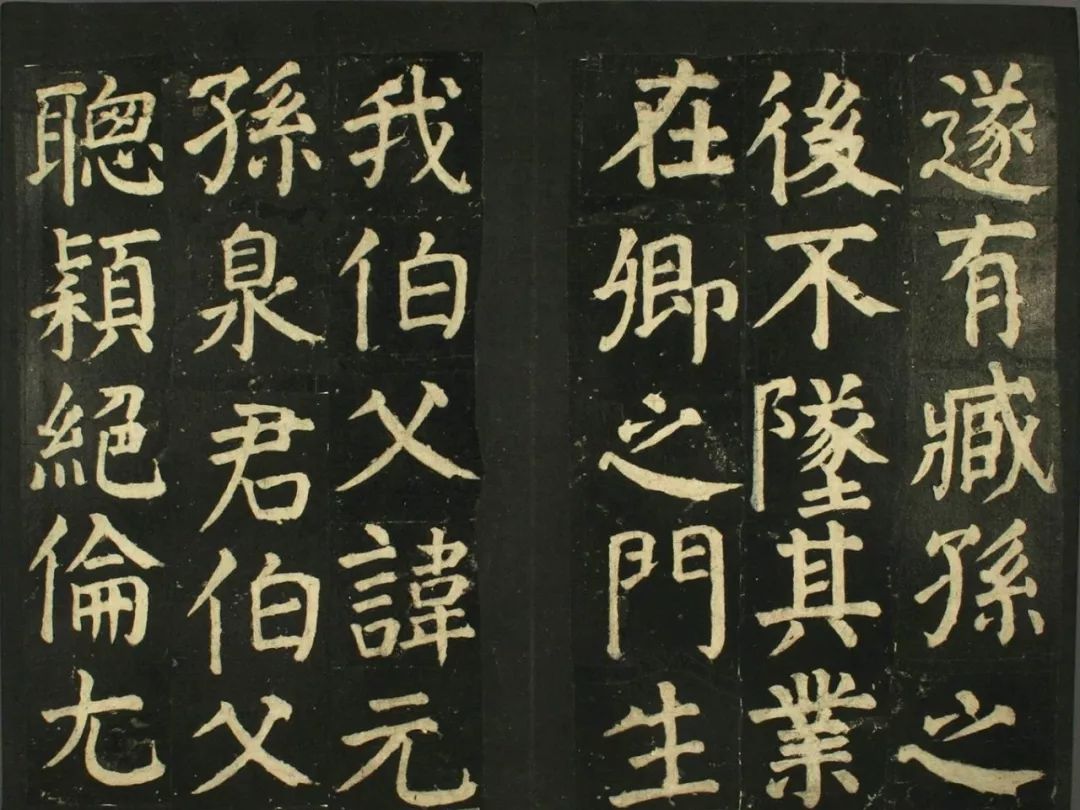 遂有臧孫之
後不墜其業
在卿之門生
我伯父諱元
孫泉君伯父
聰穎絕倫尢